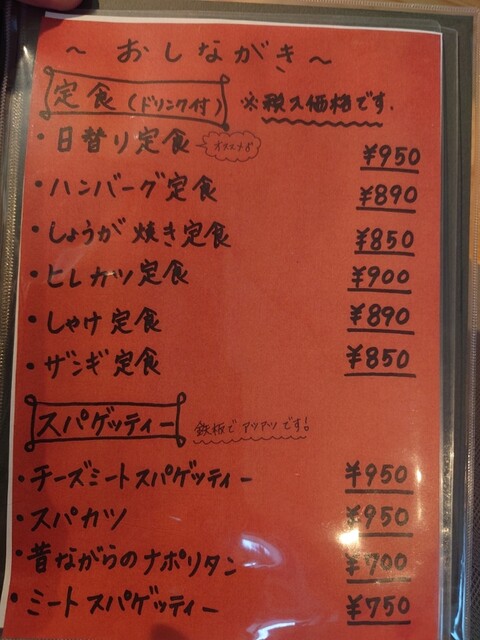 ～ おしながき ～
定食 (ドリンク付) ※税込価格です.
・日替り定食 オススメ ¥950
・ハンバーグ定食 ¥890
・しょうが焼き定食 ¥850
・ヒレカツ定食 ¥900
・しゃけ定食 ¥890
・ザンギ定食 ¥850
スパゲッティー 鉄板でアツアツです!
・チーズミートスパゲッティー ¥950
・スパカツ ¥950
・昔ながらのナポリタン ¥700
・ミートスパゲッティー ¥750